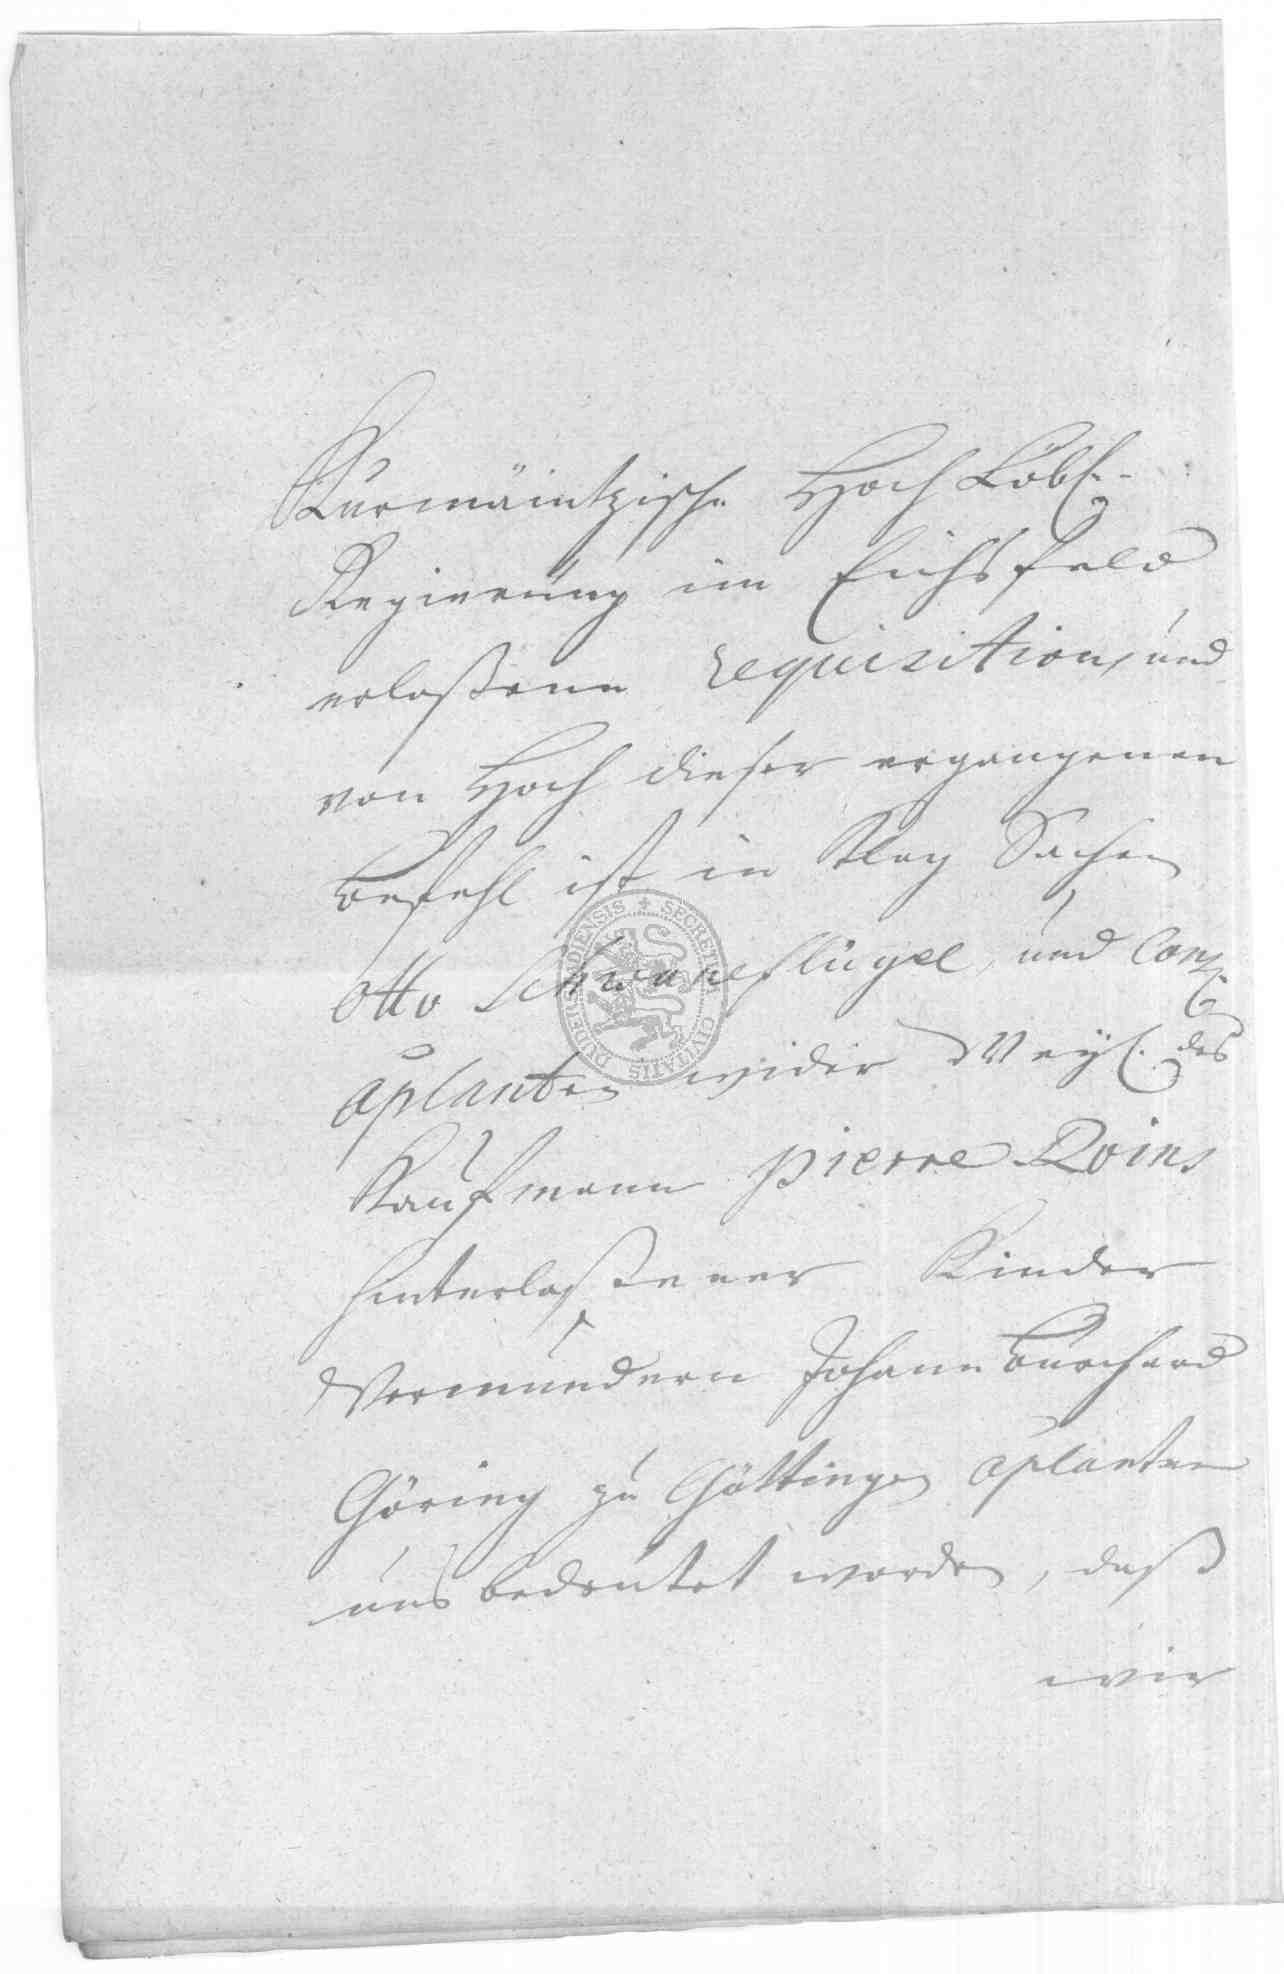 Kurmäintzische Hoch Löbl.
Regierung im Eichsfeld
erlaßene requisition, und
von Hoch dieser ergangenen
Befehl ist in Klag Sachen
Otto Schwaneflügel, und Cons.
aplanten wider Weyl. des
Kaufmann pierre Roins
hinterlaßener Kinder
Vormündern Johann Burchard
Göring zu Göttingen aplanten
uns bedeutet worden, daß
wir
SECRETUM CIVITATIS DUDERSTADIENSIS